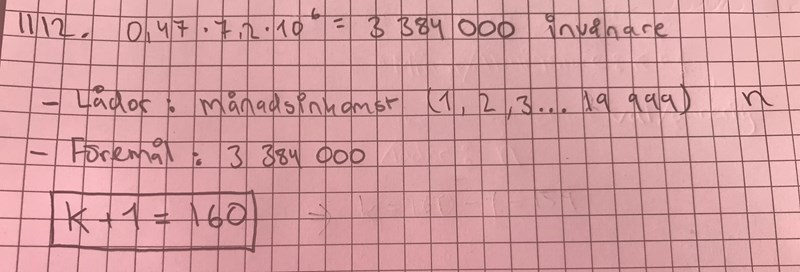 1112. 0,47 · 7,2 · 10⁶ = 3 384 000 invånare
- Lådor : månadsinkomst (1, 2, 3 ... 19 999) n
- Föremål : 3 384 000
K + 1 = 160